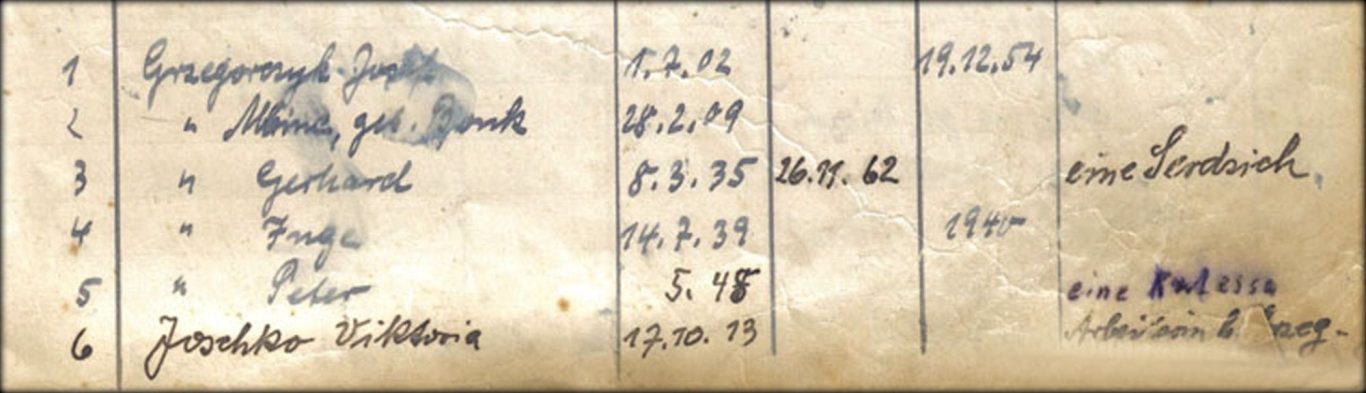 1 Grzegorczyk Josef 1.7.02 19.12.54
2 " geb. Bonk 28.2.09
3 " Gerhard 8.3.35 26.11.62 eine Serdzich
4 " Inge 14.7.39 1940
5 " Peter 5.48 eine
6 Joschko Viktoria 17.10.13 Arbeiterin b.